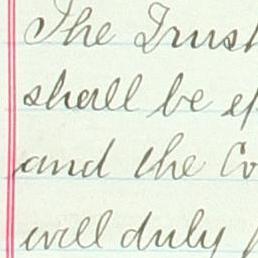 The Trust
shall be ef
and the Co
will duly